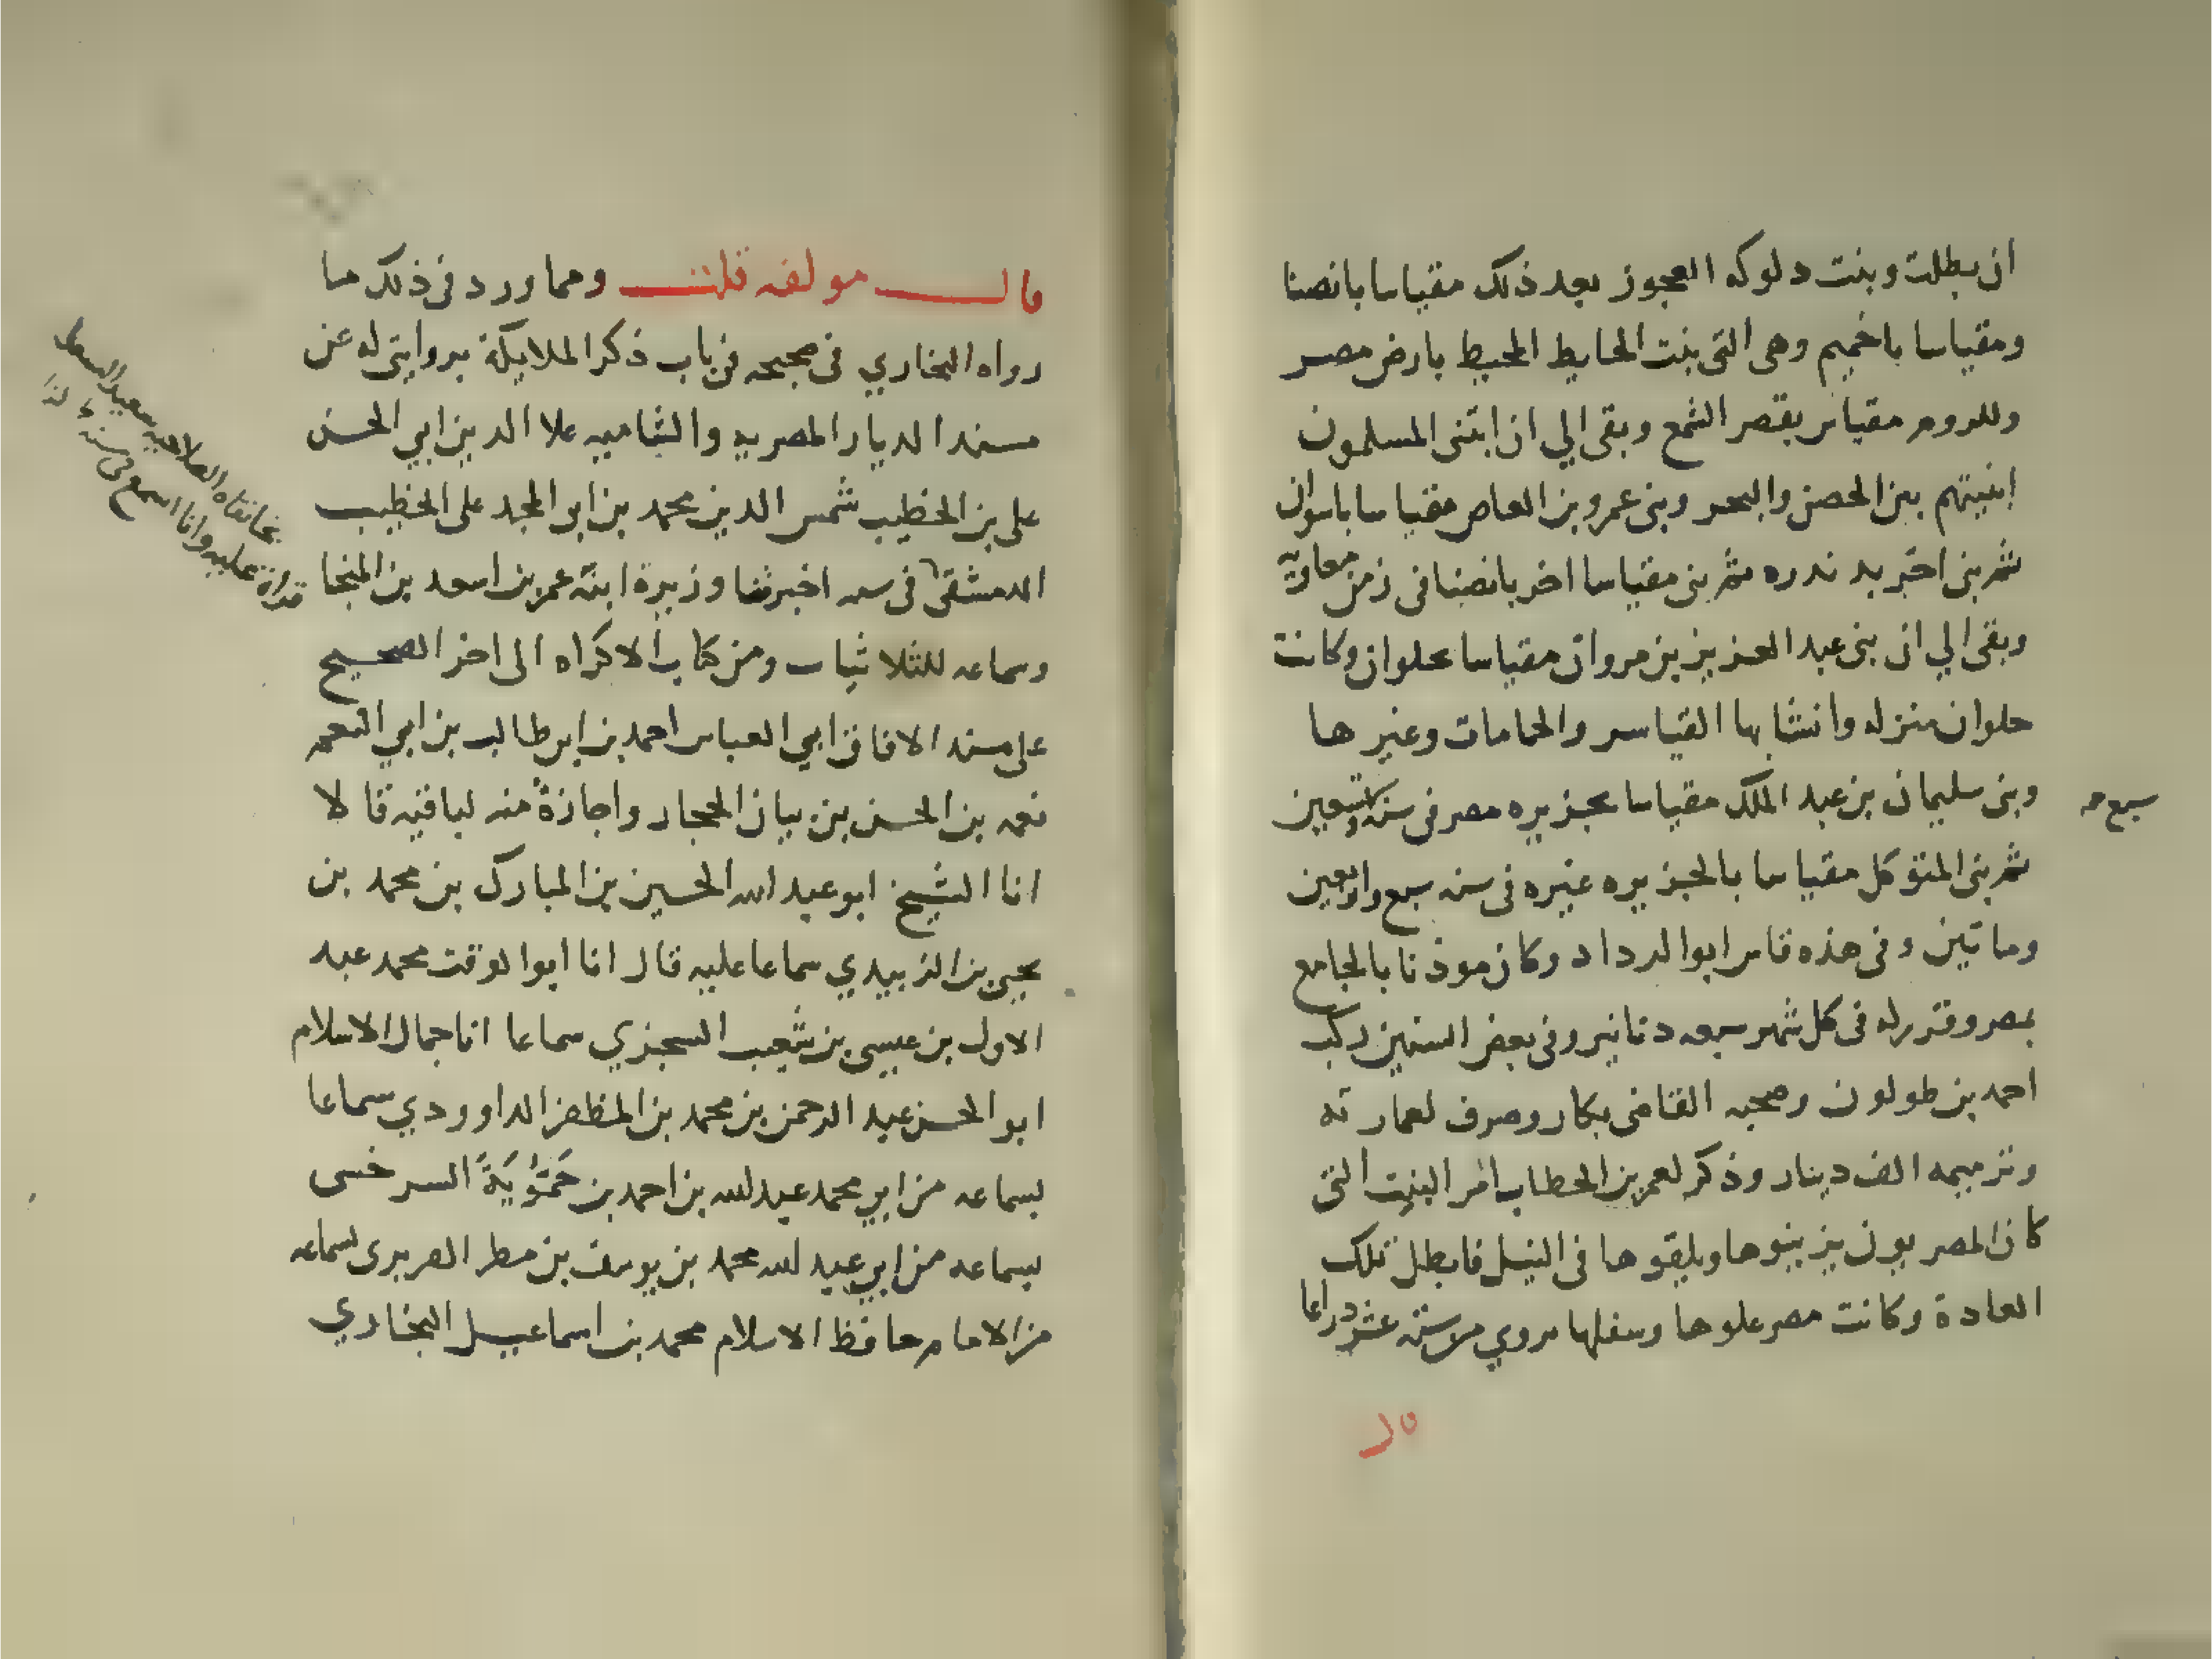 ان بطلت وبنت دلوكه العجوز بعد ذلك مقياسا بانصنا
ومقياسا باخميم وهى التى بنت الحايط المحيط بارض مصر
وللروم مقياس بقصر الشمع وبقى الي ان ابتنى المسلمون
ابنيتهم بين الحصن والبحر وبنى عمرو بن العاص مقياسا باسوان
ثم بنى اخر بدندره ثم بنى مقياسا اخر بانصنا فى زمن معاوية
وبقى الي ان بنى عبد العزيز بن مروان مقياسا بحلوان وكانت
حلوان منزله وانشا بها القياسر والحمامات وغيرها
وبنى سليمان بن عبد الملك مقياسا بجزيره مصر فى سنة وتسعين
سبع صح
ثم بنى المتوكل مقياسا بالجزيره غيره فى سنه سبع واربعين
وماتين وفى هذه قاس ابوالرداد وكان موذنا بالجامع
بمصر وقرر له فى كل شهر سبعه دنانير وفى بعض السنين ركب
احمد بن طولون وصحبه القاضى بكار وصرف لعمارته
وترميمه الف دينار وذكر لعمر بن الخطاب امر البنت التى
كان المصريون يزينوها ويلقوها فى النيل فابطل تلك
العادة وكانت مصر علوها وسفلها تروي من ستة عشر دراعا
قال مولفه قلت ومما ورد فى ذلك ما
رواه البخاري فى صحيحه فى باب ذكر الملايكة بروايتى له عن
مسند الديار المصريه والشاميه علا الدين ابي الحسن
على بن الخطيب شمس الدين محمد بن ابى المجد على الخطيب
الدمشقى فى سمه اخبرتنا وزيرة ابنة عمر بن اسعد بن المنجا
قراة عليه وانا اسمع فى سنة
بخانقاه الصلاحيه سعيد السعدا
وسماعه للثلاثيات ومن كتاب الاكراه الى اخر الصحيح
على مسند الافاق ابي العباس احمد بن ابى طالب بن ابي النعم
نعمه بن الحسن بن بيان الحجار واجازة منه لباقيه قالا
انا الشيخ ابو عبد الله الحسين بن المبارك بن محمد بن
يحيى بن الزبيدي سماعا عليه قال انا ابوا لوقت محمد عبد
الاول بن عيسى بن شعيب السجزي سماعا انا جمال الاسلام
ابو الحسن عبد الرحمن بن محمد بن المظفر الداوودي سماعا
بسماعه من ابى محمد عبد الله بن احمد بن حَمُّوْيَةَ السرخسى
بسماعه من ابى عبد الله محمد بن يوسف بن مطر الفربرى بسماعه
من الامام حافظ الاسلام محمد بن اسماعيل البخاري